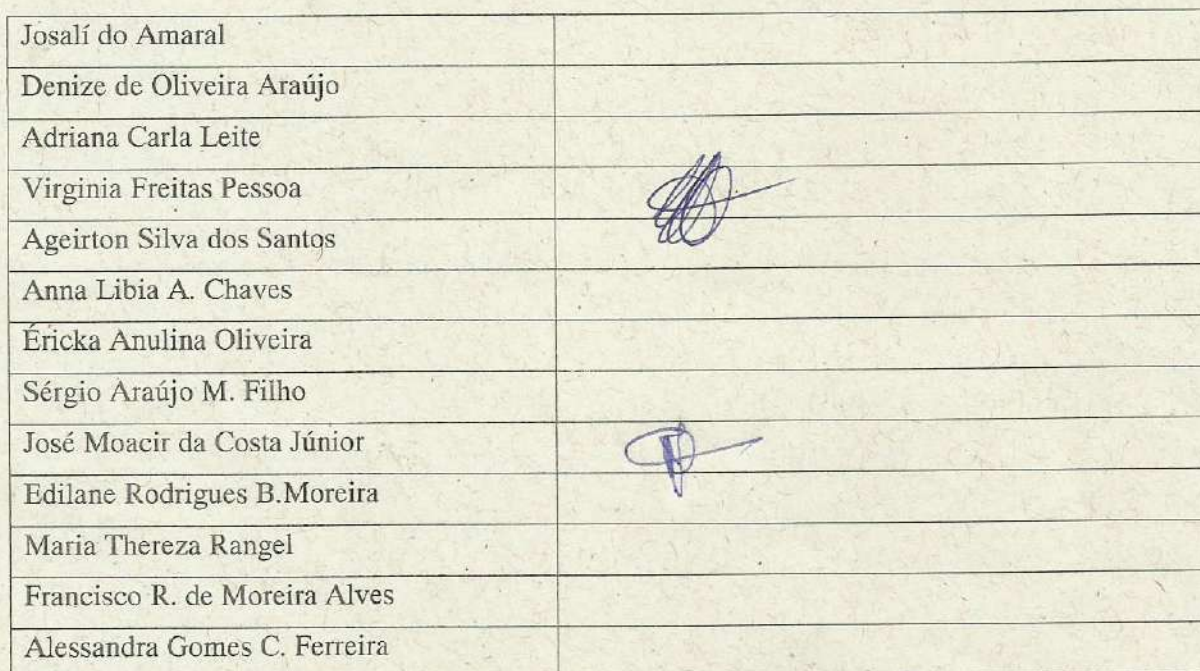 Josalí do Amaral
Denize de Oliveira Araújo
Adriana Carla Leite
Virginia Freitas Pessoa
Ageirton Silva dos Santos
Anna Libia A. Chaves
Éricka Anulina Oliveira
Sérgio Araújo M. Filho
José Moacir da Costa Júnior
Edilane Rodrigues B.Moreira
Maria Thereza Rangel
Francisco R. de Moreira Alves
Alessandra Gomes C. Ferreira